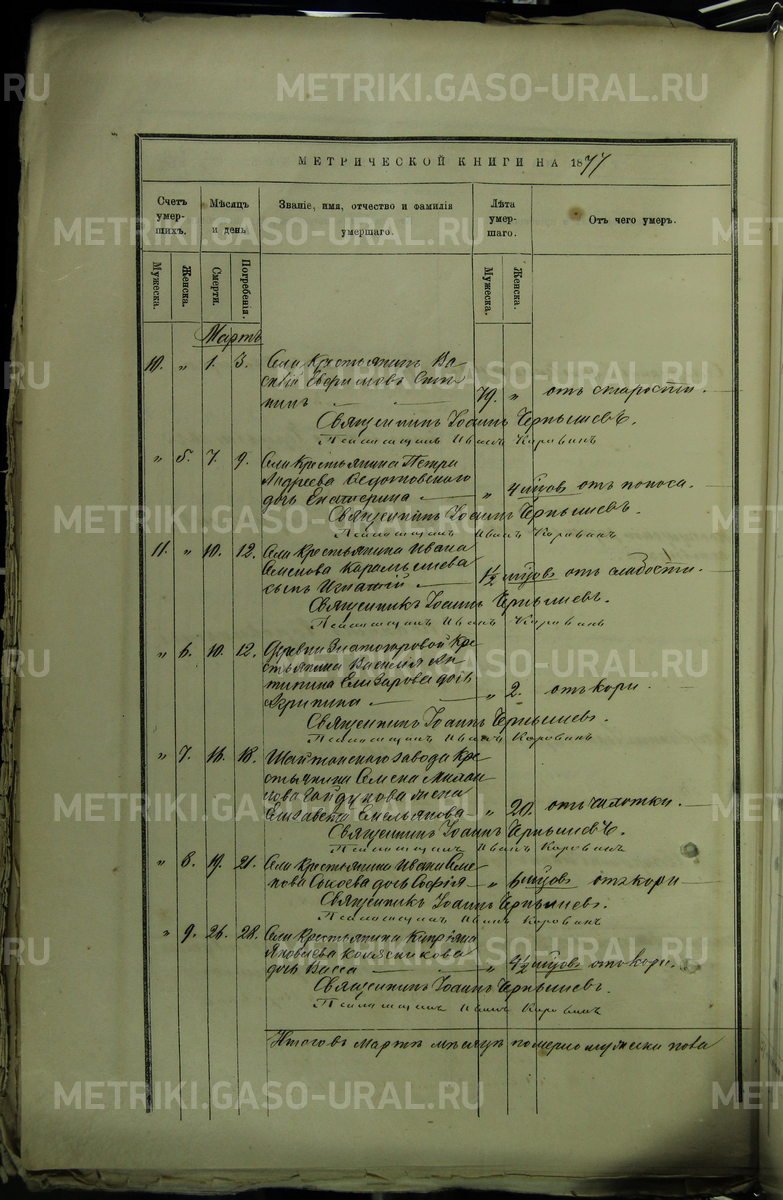 METRIKI.GASO-URAL.RU
МЕТРИЧЕСКОЙ КНИГИ НА 1877
Счетъ умерших. Мѣсяцъ и день Званіе, имя, отчество и фамилія умершаго. Лѣта умершаго. Отъ чего умеръ.
Мужеска. Женска. Смерти. Погребенія. Мужеска. Женска.
Мартъ
10. „ 1. 3. Села Крестьянинъ Ва
силій Евфимовъ
нинъ 79. „ отъ старости.
Священникъ Іоаннъ Чернышевъ.
Псаломщикъ Иванъ Коровинъ
„ 5. 7. 9. Села Крестьянина Петра
Андреева Федотовскаго
дочь Екатерина „ 4 мцов отъ поноса.
Священникъ Іоаннъ Чернышевъ.
Псаломщикъ Иванъ Коровинъ
11. „ 10. 12. Села Крестьянина Ивана
Семенова Карамышева
сынъ Игнатій 1½ мцов отъ слабости.
Священникъ Іоаннъ Чернышевъ.
Псаломщикъ Иванъ Коровинъ
„ 6. 10. 12. Деревни Златогоровой Кре
стьянина Василія Ан
типина Елизарова дочь
Агрипина „ 2. отъ кори.
Священникъ Іоаннъ Чернышевъ.
Псаломщикъ Иванъ Коровинъ
„ 7. 16. 18. Шайтанскаго завода Кре
стьянина Семена Михаи
лова Гайдукова жена
Елизавета Емельянова „ 20. отъ чахотки.
Священникъ Іоаннъ Чернышевъ.
Псаломщикъ Иванъ Коровинъ
„ 8. 19. 21. Села Крестьянина Ивана Семе
нова дочь Софія „ 6 мцов отъ кори
Священникъ Іоаннъ Чернышевъ.
Псаломщикъ Иванъ Коровинъ
„ 9. 26. 28. Села Крестьянина Кипріяна
Яковлева Колясникова
дочь Васса „ 4½ мцов отъ кори.
Священникъ Іоаннъ Чернышевъ.
Псаломщикъ Иванъ Коровинъ
Итого въ Мартѣ мѣсяцѣ померло мужеска пола